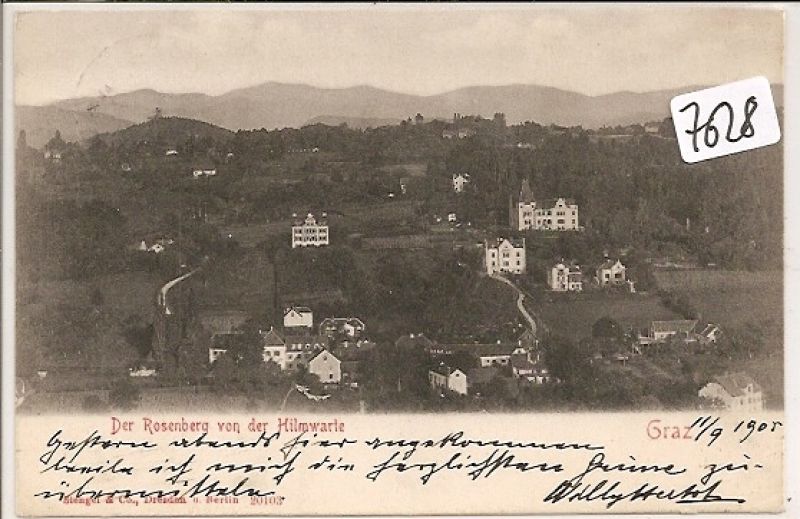 7628
Der Rosenberg von der Hilmwarte
Graz 11/9 1905
Gestern abends hier angekommen
beeile ich mich die herzlichsten Grüsse zu-
übermitteln
Stengel & Co., Dresden u. Berlin 20103